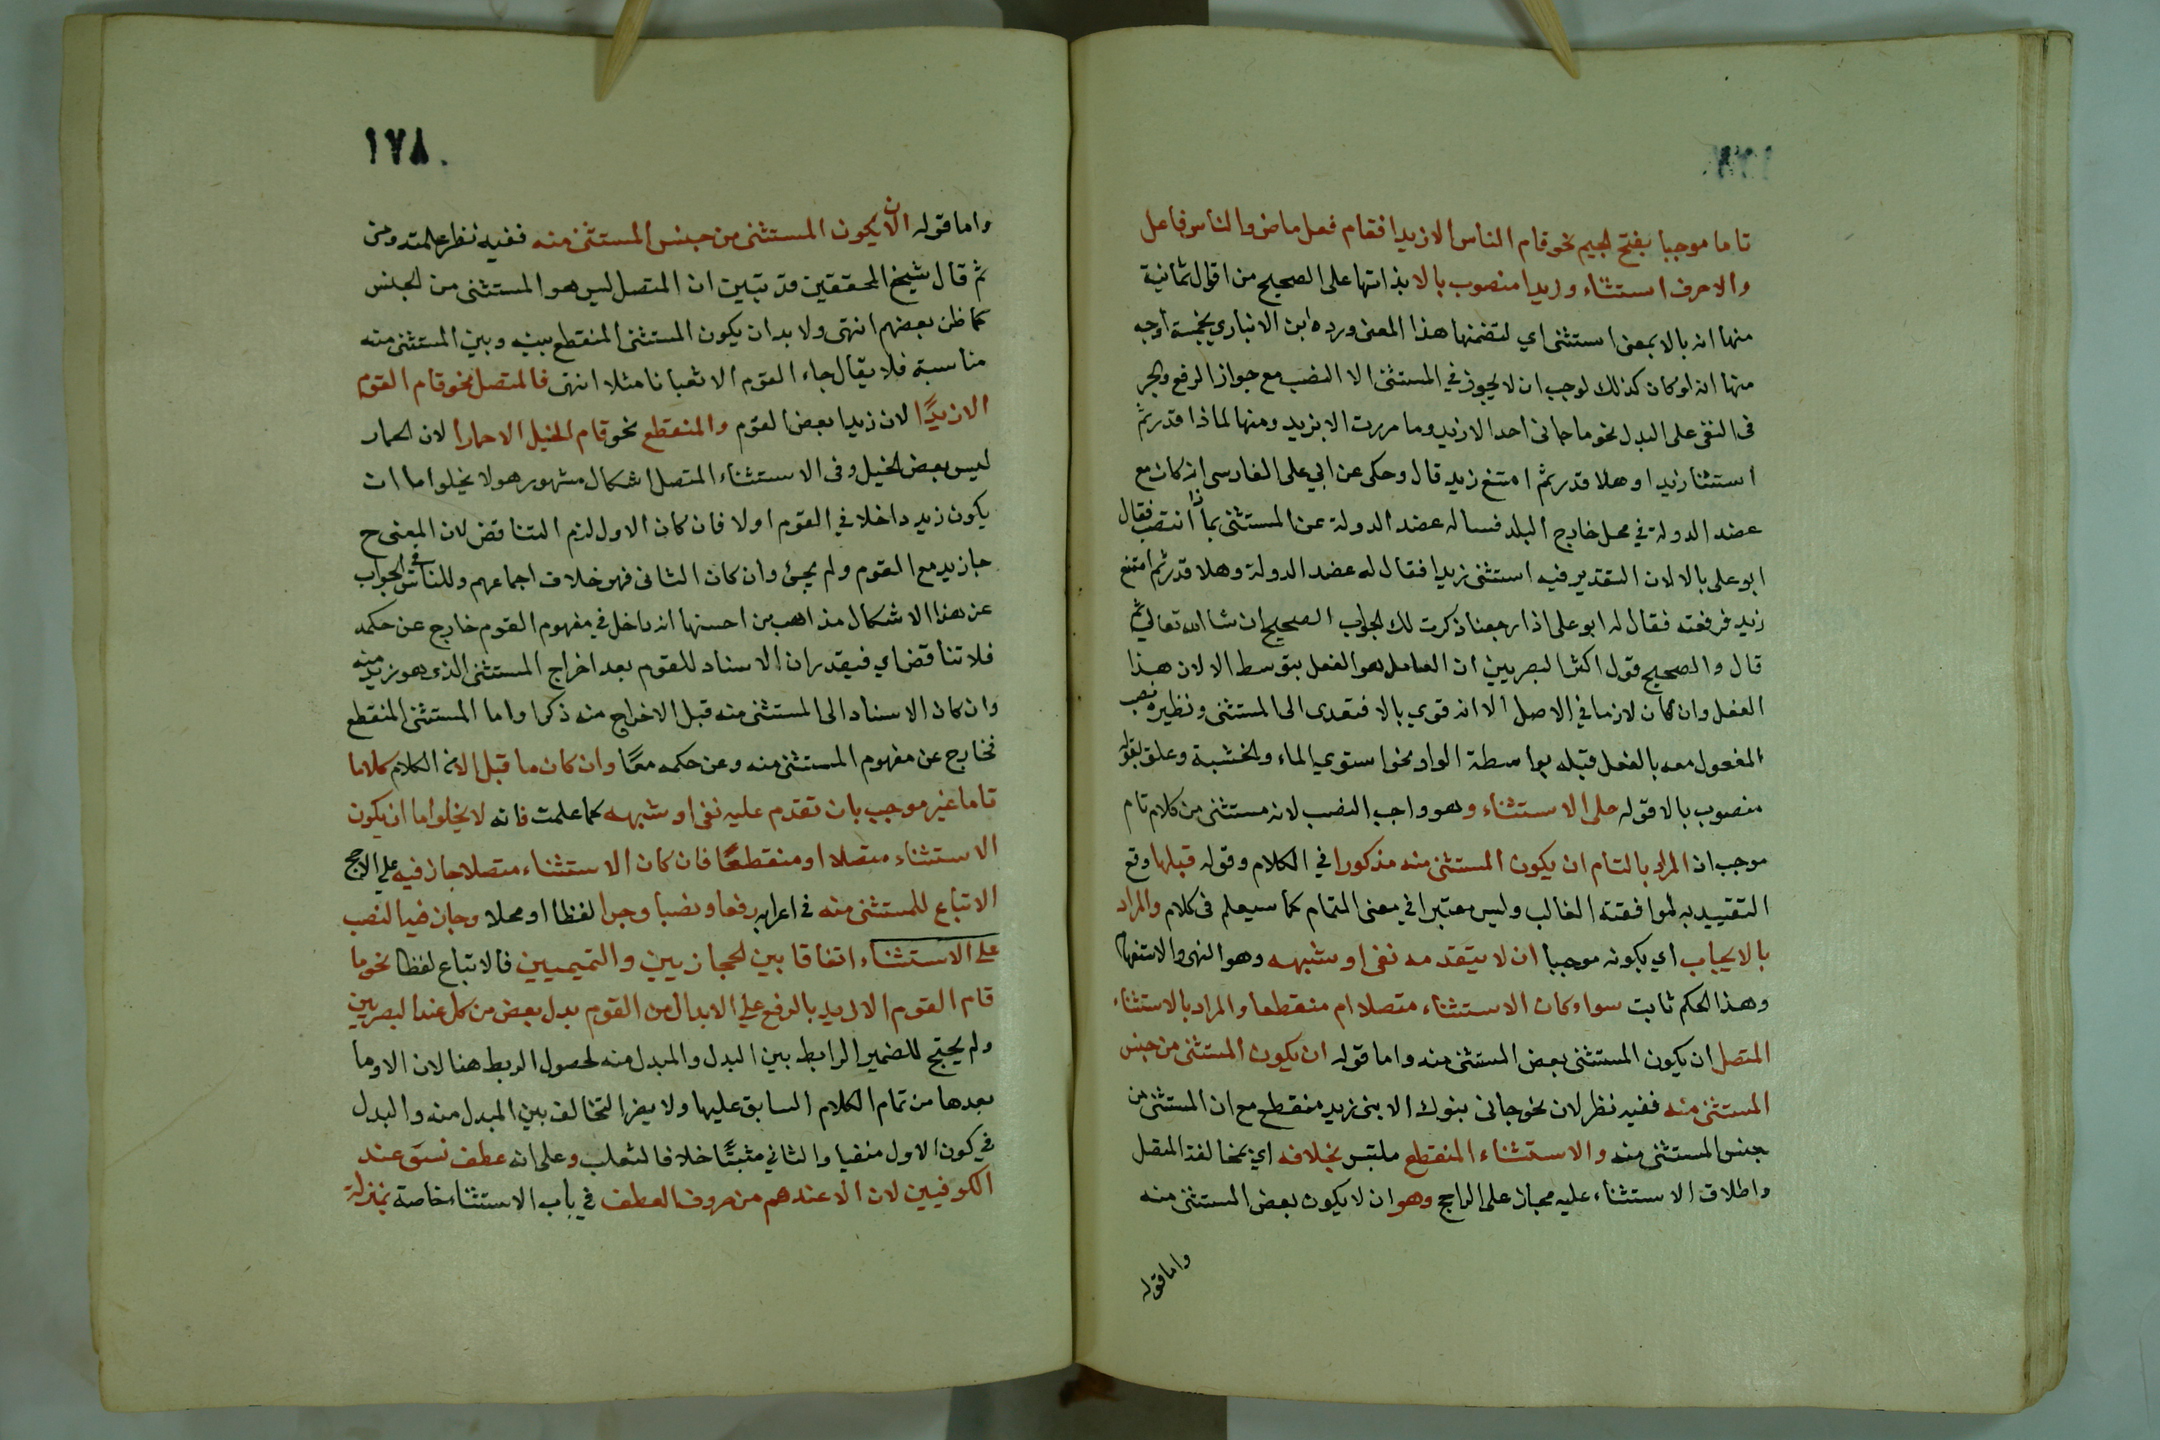 تاما موجبا بفتح الجيم نحو قام الناس الا زيدا فقام فعل ماض والناس فاعل
والا حرف استثناء وزيدا منصوب بالا بذاتها على الصحيح من اقوال ثمانية
منها انه بالا بمعنى استثنى اي لتضمنها هذا المعنى ورده ابن الانباري بخمسة اوجه
منها انه لو كان كذلك لوجب ان لا يجوز في المستثنى الا النصب مع جواز الرفع والجر
فى النفى على البدل نحو ما جانى احد الا زيد وما مررت الا بزيد ومنها لماذا قدرتم
استثنا زيدا وهلا قدرتم امتنع زيد قال وحكى عن ابي على الفارسى انه كان مع
عضد الدولة في محل خارج البلد فساله عضد الدولة عن المستثنى بماذا انتصب فقال
ابو على بالا لان التقدير فيه استثنى زيدا فقال له عضد الدولة وهلا قدرتم امتنع
زيد فرفعته فقال له ابو على اذا رجعنا ذكرت لك الجواب الصحيح ان شا الله تعالى ثم
قال والصحيح قول اكثر البصريين ان العامل هو الفعل بتوسط الا لان هذا
الفعل وان كان لازما في الاصل الا انه قوي بالا فتعدى الى المستثنى ونظيره نصب
المفعول معه بالفعل قبله بواسطة الواو نحو استوي الماء والخشبة وعلق بقوله
منصوب بالا قوله على الاستثناء وهو واجب النصب لانه مستثنى من كلام تام
موجب ان المراد بالتام ان يكون المستثنى منه مذكورا في الكلام وقوله قبلها وقع
التقييد به لموافقته الغالب وليس معتبرا في معنى التمام كما سيعلم فى كلام والمراد
بالايجاب اي بكونه موجبا ان لا يتقدمه نفى او شبهه وهو النهى والاستفهام
وهذا الحكم ثابت سواء كان الاستثناء متصلا ام منقطعا والمراد بالاستثناء
المتصل ان يكون المستثنى بعض المستثنى منه واما قوله ان يكون المستثنى من جنس
المستثنى منه ففيه نظر لان نحو جانى بنوك الا بنى زيد منقطع مع ان المستثنى من
جنس المستثنى منه والاستثناء المنقطع ملتبس بخلافه اي بمخالفة المتصل
واطلاق الاستثناء عليه مجاز على الراجح وهو ان لا يكون بعض المستثنى منه
واما قوله
١٧٨
واما قوله الا ان يكون المستثنى من جنس المستثنى منه ففيه نظر علمته ومن
ثم قال شيخ المحققين قد تبين ان المتصل ليس هو المستثنى من الجنس
كما ظن بعضهم انتهى ولا بد ان يكون المستثنى المنقطع بينه وبين المستثنى منه
مناسبة فلا يقال جاء القوم الا ثعبانا مثلا انتهى فالمتصل نحو قام القوم
الا زيدًا لان زيدا بعض القوم والمنقطع نحو قام الخيل الا حمارا لان الحمار
ليس بعض الخيل وفى الاستثناء المتصل اشكال مشهور هو لا يخلوا اما ان
يكون زيد داخلا في القوم اولا فان كان الاول لزم التناقض لان المعنى ح
جا زيد مع القوم ولم يجئ وان كان الثانى فهو خلاف اجماعهم وللناس في الجواب
عن هذا الاشكال مذاهب من احسنها انه داخل في مفهوم القوم خارج عن حكمه
فلا تناقض اي فيقدر ان الاسناد للقوم بعد اخراج المستثنى الذى هو زيد منه
وان كان الاسناد الى المستثنى منه قبل الاخراج منه ذكرا واما المستثنى المنقطع
فخارج عن مفهوم المستثنى منه وعن حكمه معًا وان كان ما قبل الا من الكلام كلاما
تاما غير موجب بان تقدم عليه نفى او شبهه كما علمت فانه لا يخلوا اما ان يكون
الاستثناء متصلا او منقطعًا فان كان الاستثناء متصلا جاز فيه على الارجح
الاتباع للمستثنى منه في اعرابه رفعا ونصبا وجرا لفظا او محلا وجاز فيه النصب
على الاستثناء اتفاقا بين الحجازيين والتميميين فالاتباع لفظا نحو ما
قام القوم الا زيد بالرفع على الابدال من القوم بدل بعض من كل عند البصريين
ولم يحتج للضمير الرابط بين البدل والمبدل منه لحصول الربط هنا لان الا وما
بعدها من تمام الكلام السابق عليها ولا يضر التخالف بين المبدل منه والبدل
في كون الاول منفيا والثاني مثبتًا خلافا لثعلب وعلى انه عطف نسق عند
الكوفيين لان الا عندهم من حروف العطف في باب الاستثناء خاصة بمنزلة